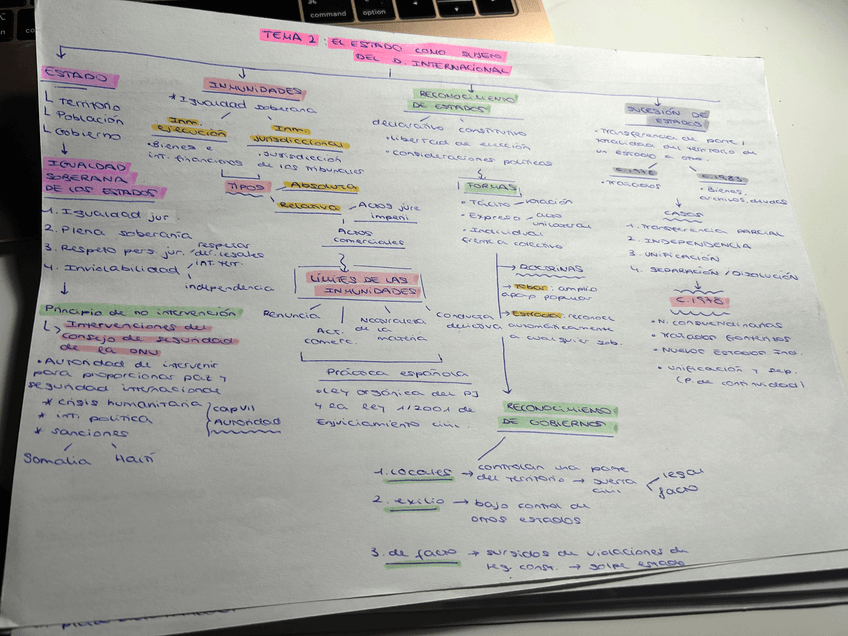 command
option
TEMA 2: EL ESTADO COMO SUJETO
DEL D. INTERNACIONAL
ESTADO
Territorio
Población
Gobierno
IGUALDAD
SOBERANA
DE LOS ESTADOS
1. Igualdad jur.
2. Plena soberanía
3. Respeto pers. jur.
respetar
der. legales
4. Inviolabilidad
int. terr.
independencia
Principio de no intervención
Intervenciones del
consejo de seguridad
de la ONU
• Autoridad de intervenir
para proporcionar paz y
seguridad internacional
* crisis humanitaria
* int. política
* sanciones
cap VII
Autoridad
Somalia Haití
INMUNIDADES
* Igualdad soberana
Inm.
ejecución
• Bienes e
int. financieros
Inm.
jurisdiccional
• Jurisdicción
de los tribunales
TIPOS
Absoluta
Relativa
Actos jure
imperii
Actos
comerciales
LÍMITES DE LAS
INMUNIDADES
Renuncia
Act.
comerc.
Naturaleza
de la
materia
Conducta
delictiva
Práctica española
• Ley orgánica del PJ
y la ley 1/2001 de
Enjuiciamiento civil.
RECONOCIMIENTO
DE ESTADOS
declarativo constitutivo
• Libertad de elección
• Consideraciones políticas
FORMAS
• Tácito
votación
• Expreso
acto
unilateral
• Individual
frente a colectivo
DOCTRINAS
Tobar: amplio
apoyo popular
Estrada: reconoce
automáticamente
a cualquier gob.
RECONOCIMIENTO
DE GOBIERNOS
1. Locales → controlan una parte
del territorio → guerra
civil
legal
facto
2. exilio → bajo control de
otros estados
3. de facto → surgidos de violaciones de
leg. const. → golpe estado
SUCESIÓN DE
ESTADOS
• Transferencia de parte /
totalidad del territorio de
un estado a otro.
C.1978
• Tratados
C.1983
• Bienes,
archivos, deudas
CASOS
1. Transferencia parcial
2. INDEPENDENCIA
3. UNIFICACIÓN
4. SEPARACIÓN / DISOLUCIÓN
C.1978
• N. consuetudinarias
• Tratados fronterizos
• Nuevos Estados Ind.
• Unificación y sep.
(P. de continuidad)